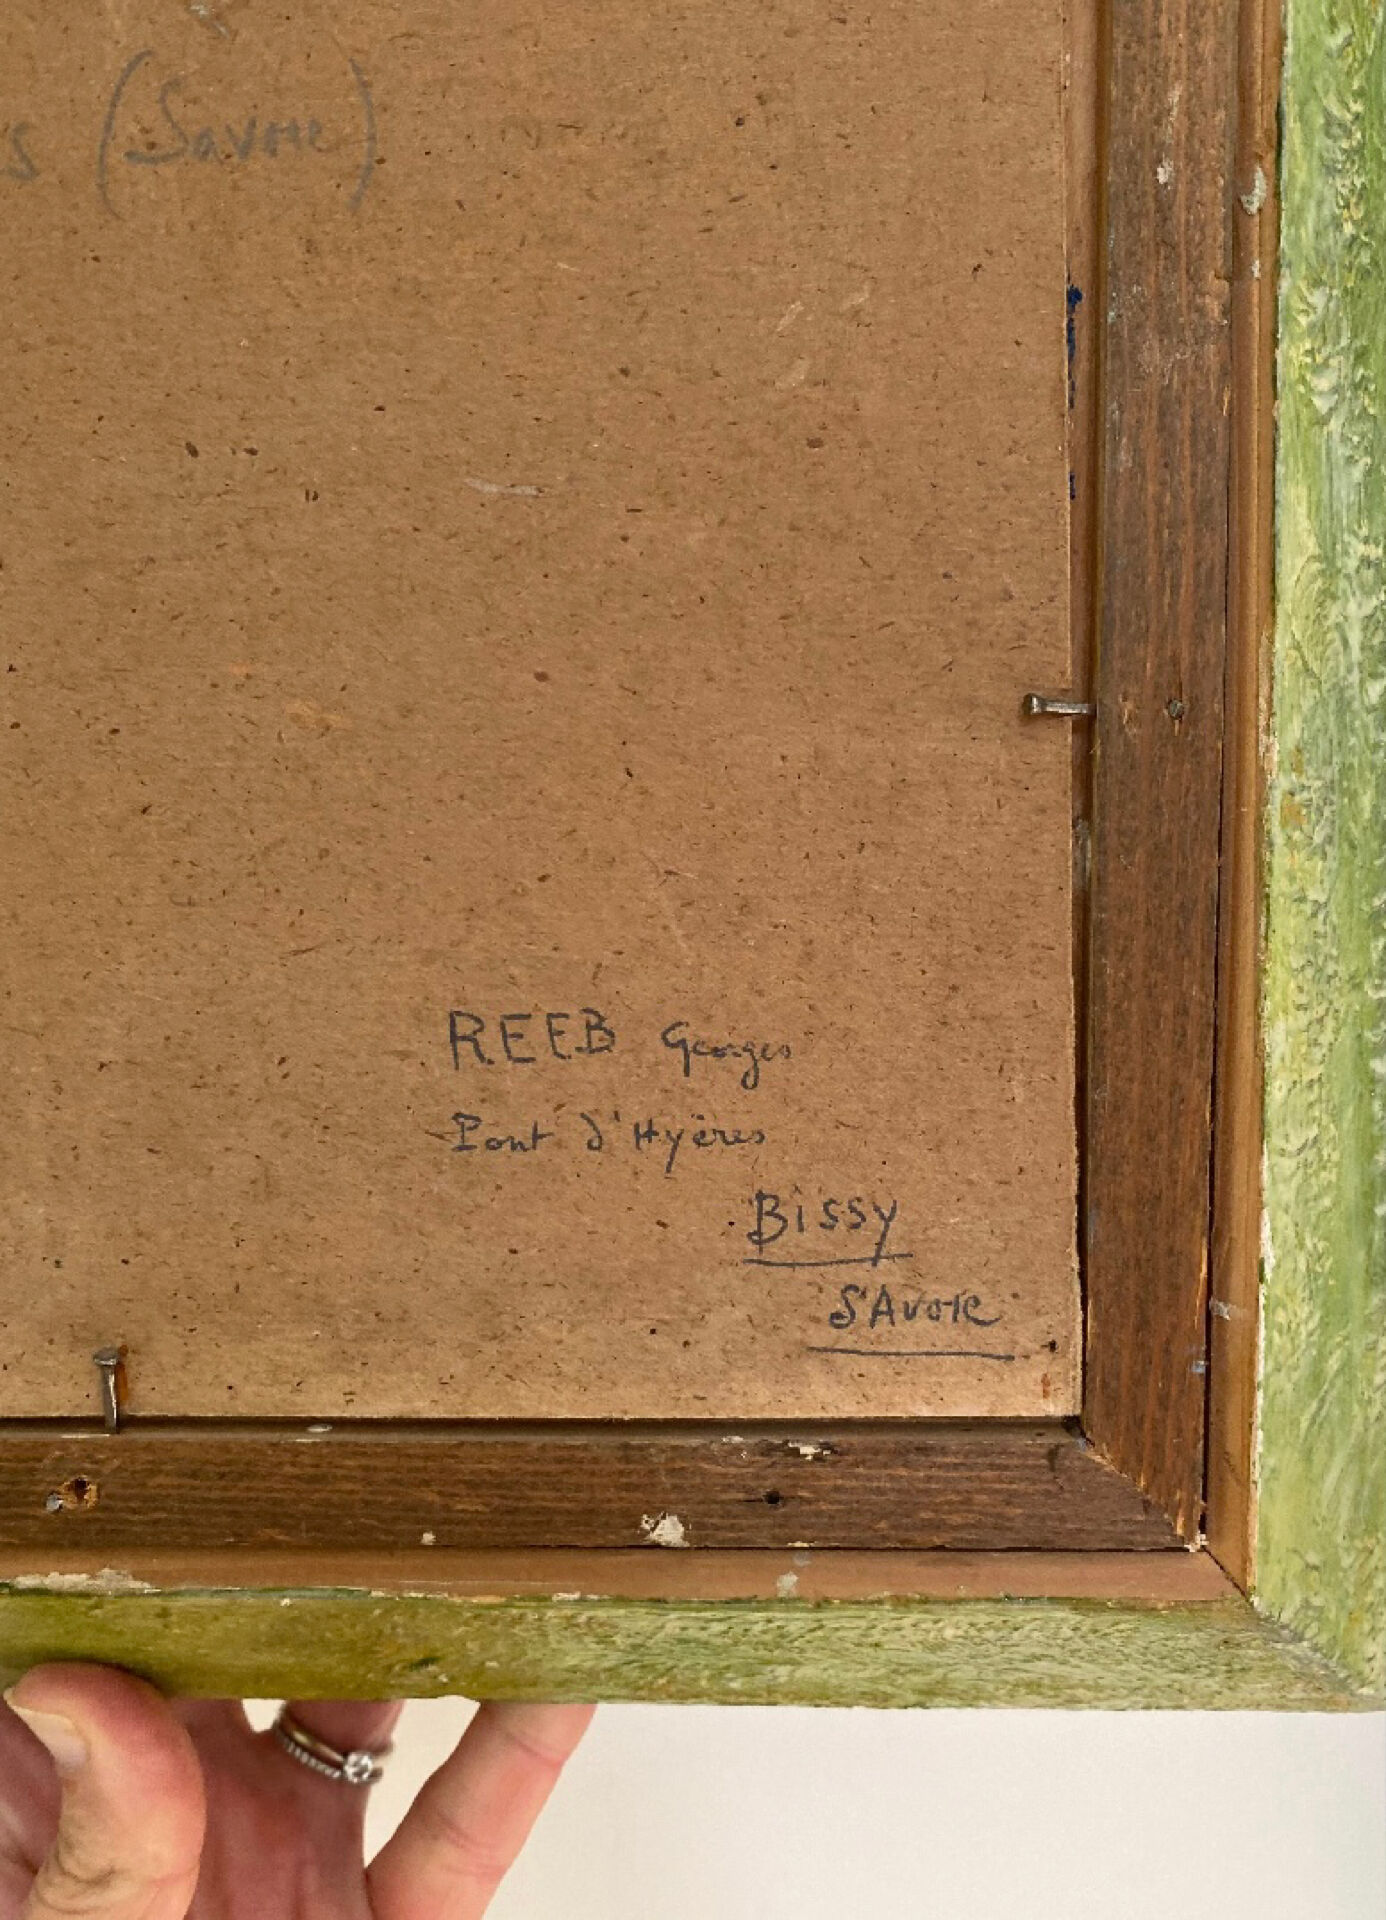 s (Savoie)
REEB Georges
Pont d'Hyères
Bissy
SAvoie